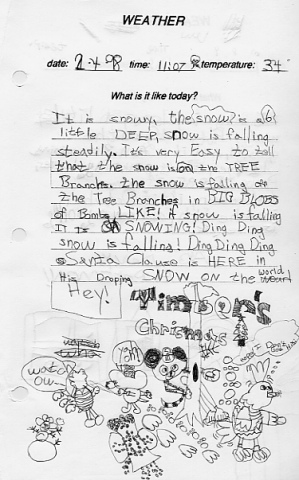 WEATHER
date: 2·4 98 time: 11:07 temperature: 34°
What is it like today?
It is snowy, the snow? is a
little DEEP, snow is falling
steadily. It's very Easy to tell
that the snow is on the TREE
Branches. the snow is falling on
the Tee Branches in BIG BLOBS
of Bombs LIKE! if snow is falling
It Is SNOWING! Ding Ding
snow is falling! Ding Ding Ding
Santa Clause is HERE in
His Droping SNOW ON the world
Hey!
Christmas
watch
out